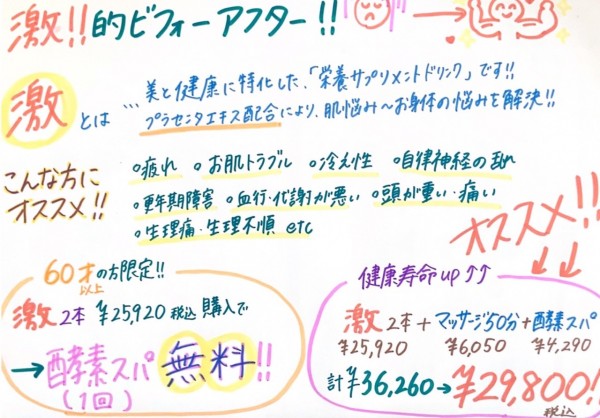 激!!的ビフォーアフター!!
激とは
…美と健康に特化した、「栄養サプリメントドリンク」です!!
プラセンタエキス配合により、肌悩み〜お身体の悩みを解決!!
こんな方に
オススメ!!
○疲れ ○お肌トラブル ○冷え性 ○自律神経の乱れ
○更年期障害 ○血行・代謝が悪い ○頭が重い・痛い
○生理痛・生理不順 etc
60才以上の方限定!!
激2本 ¥25,920税込購入で
→酵素スパ無料!!
(1回)
オススメ!!
健康寿命up↑↑
激2本+マッサージ50分+酵素スパ
¥25,920 ¥6,050 ¥4,290
計¥36,260→¥29,800!!
税込